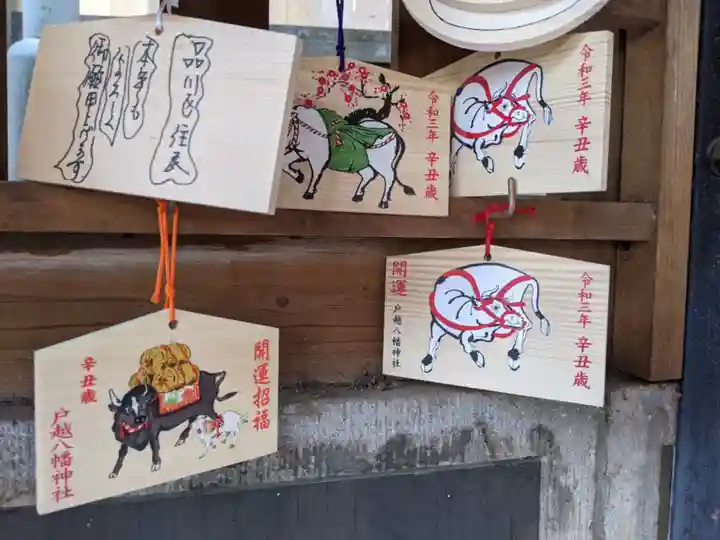 品川区住民
本年も
よろしく
御願申上げます
令和三年 辛丑歳
令和三年 辛丑歳
開運
戸越八幡神社
令和三年 辛丑歳
開運招福
辛丑歳
戸越八幡神社